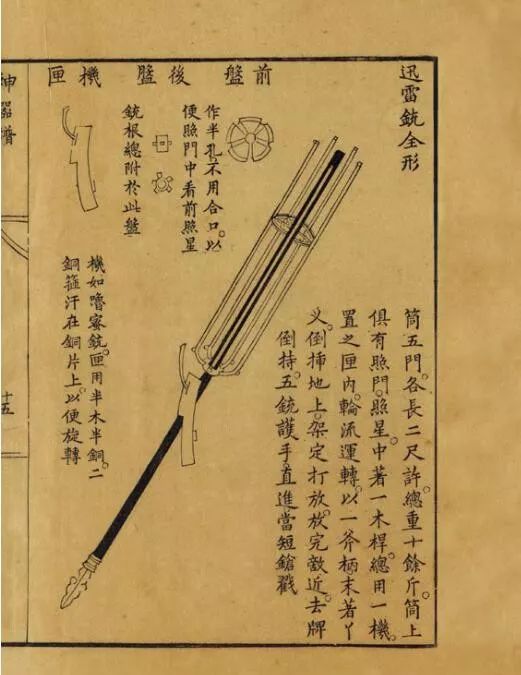 迅雷銃全形
筒五門。各長二尺許。總重十餘斤。筒上
俱有照門。照星。中著一木桿。總用一機。
置之匣內。輪流運轉。以一斧柄末著丫
叉。倒揷地上。架定打放。放完敵近。去牌
倒持五銃護手。直進當短鎗戳
前盤
作半孔。不用合口。以
便照門中看前照星
後盤
銃根總附於此盤
機匣
機如嚕密銃。匣用半木半銅。二
銅箍汗在銅片上。以便旋轉
神器譜
十五